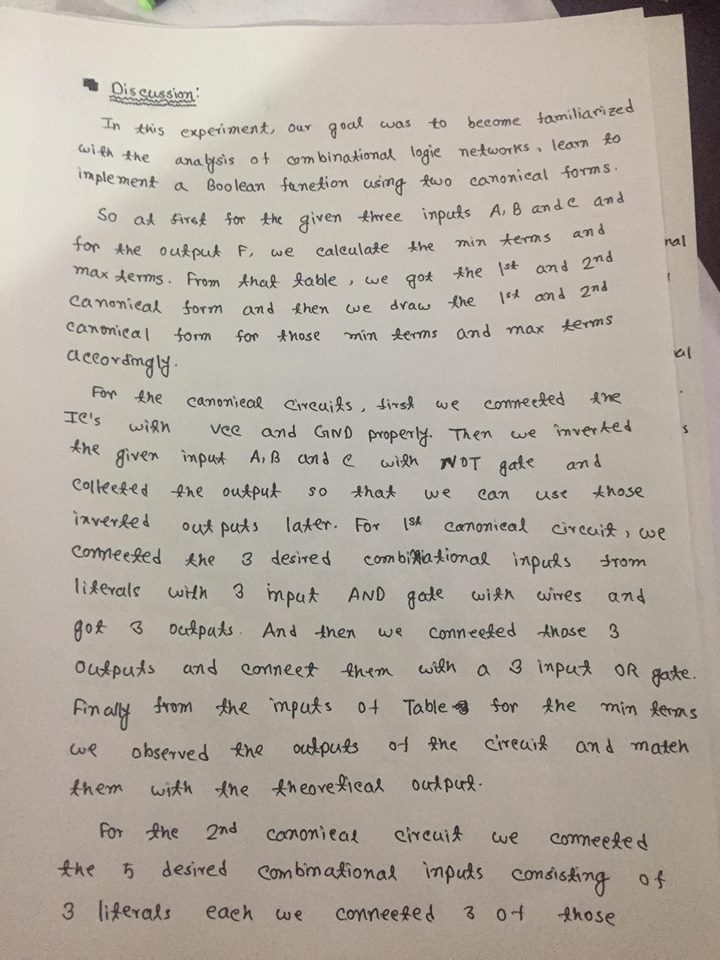 Discussion:
In this experiment, our goal was to become familiarized
with the analysis of combinational logic networks, learn to
implement a Boolean function using two canonical forms.
So at first for the given three inputs A, B and C and
for the output F, we calculate the min terms and
max terms. From that table, we got the 1st and 2nd
canonical form and then we draw the 1st and 2nd
canonical form for those min terms and max terms
accordingly.
For the canonical circuits, first we connected the
IC's with VCC and GND properly. Then we inverted
the given input A, B and C with NOT gate and
collected the output so that we can use those
inverted out puts later. For 1st canonical circuit, we
connected the 3 desired combinational inputs from
literals with 3 input AND gate with wires and
got 3 outputs. And then we connected those 3
outputs and connect them with a 3 input OR gate.
Finally from the inputs of Table for the min terms
we observed the outputs of the circuit and match
them with the theoretical output.
For the 2nd canonical circuit we connected
the 5 desired combinational inputs consisting of
3 literals each we connected 3 of those
nal
al
s